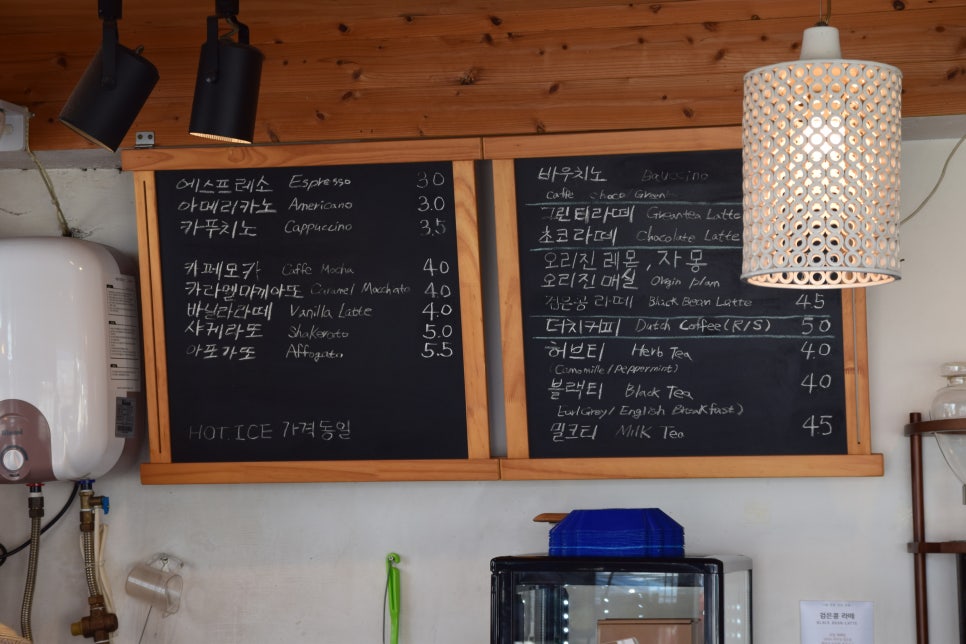 에스프레소 Espresso 3.0
아메리카노 Americano 3.0
카푸치노 Cappuccino 3.5
카페모카 Caffe Mocha 4.0
카라멜마케아또 Caramel Macchato 4.0
바닐라라떼 Vanilla Latte 4.0
샤케라또 Shakerato 5.0
아포가또 Affogato 5.5
HOT.ICE 가격동일
바우치노 Bauccino
Caffe choco Green
그린티라떼 Greentea Latte
초코라떼 Chocolate Latte
오리진 레몬, 자몽
오리진 매실 Origin plum
검은콩라떼 Black Bean Latte 4.5
더치커피 Dutch Coffee(R/S) 5.0
허브티 Herb Tea 4.0
(Camomille/Peppermint)
블랙티 Black Tea 4.0
Earl Grey/English Breakfast)
밀크티 Milk Tea 4.5
검은콩 라떼
BLACK BEAN LATTE